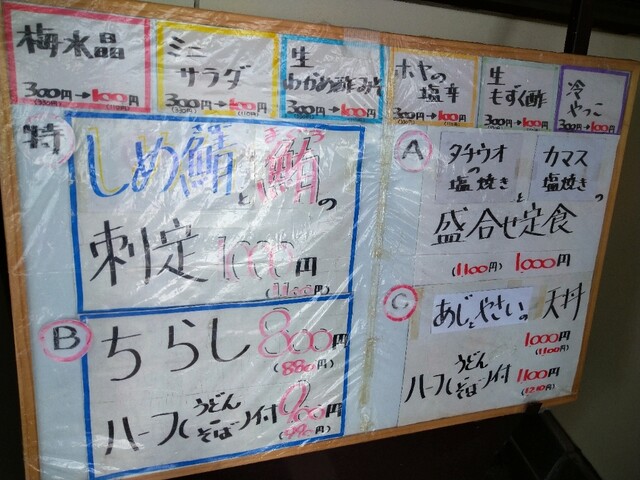 梅水晶
300円→100円
(330円) (110円)
ミニ
サラダ
300円→100円
(330円) (110円)
生
わかめ酢みそ
300円→100円
ホヤの
塩辛
300円→100円
生
もずく酢
300円→100円
冷
やっこ
300円→100円
特
まぐろ
しめ鯖と鮪の
刺定 1000円
(1100円)
B
ちらし 800円
(880円)
ハーフ(うどん
そば)付 900円
(990円)
A
タチウオ
の
塩焼き
と
カマス
の
塩焼き
盛合せ定食
(1100円) 1000円
C
あじとやさいの天丼
1000円
(1100円)
ハーフ(うどん
そば)付 1100円
(1210円)